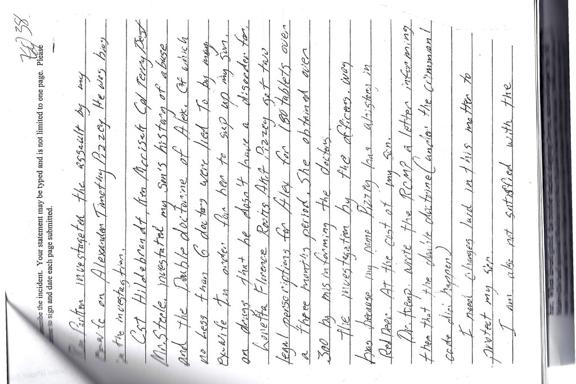 be the incident. Your statement may be typed and is not limited to one page. Please
me to sign and date each page submitted.
38
investigated the assault by my
on Alexander Timothy Pizzey. He was
in the investigation.
Cst Hildebrandt Ken Morrisett Cpl Terry
investigated my son's history of abuse
and the Double doctoring of Alex. Of which
no less than 6 doctors were lied to by my
exwife in order for her to my son
on drugs that he doesn't have a disorder for.
Florence Pizzey got two
legal perscriptions for Alex for 180 tablets over
a three months period. She obtained over
300 by misinforming the doctors.
The investigation by the officers was
because my name Pizzey in
Red Deer. At the cost of my son.
Dr. wrote the RCMP a letter informing
them that the double doctoring (under the criminal
code did happen)
I need charges laid in this matter to
protect my son
I am also not satisfied with the